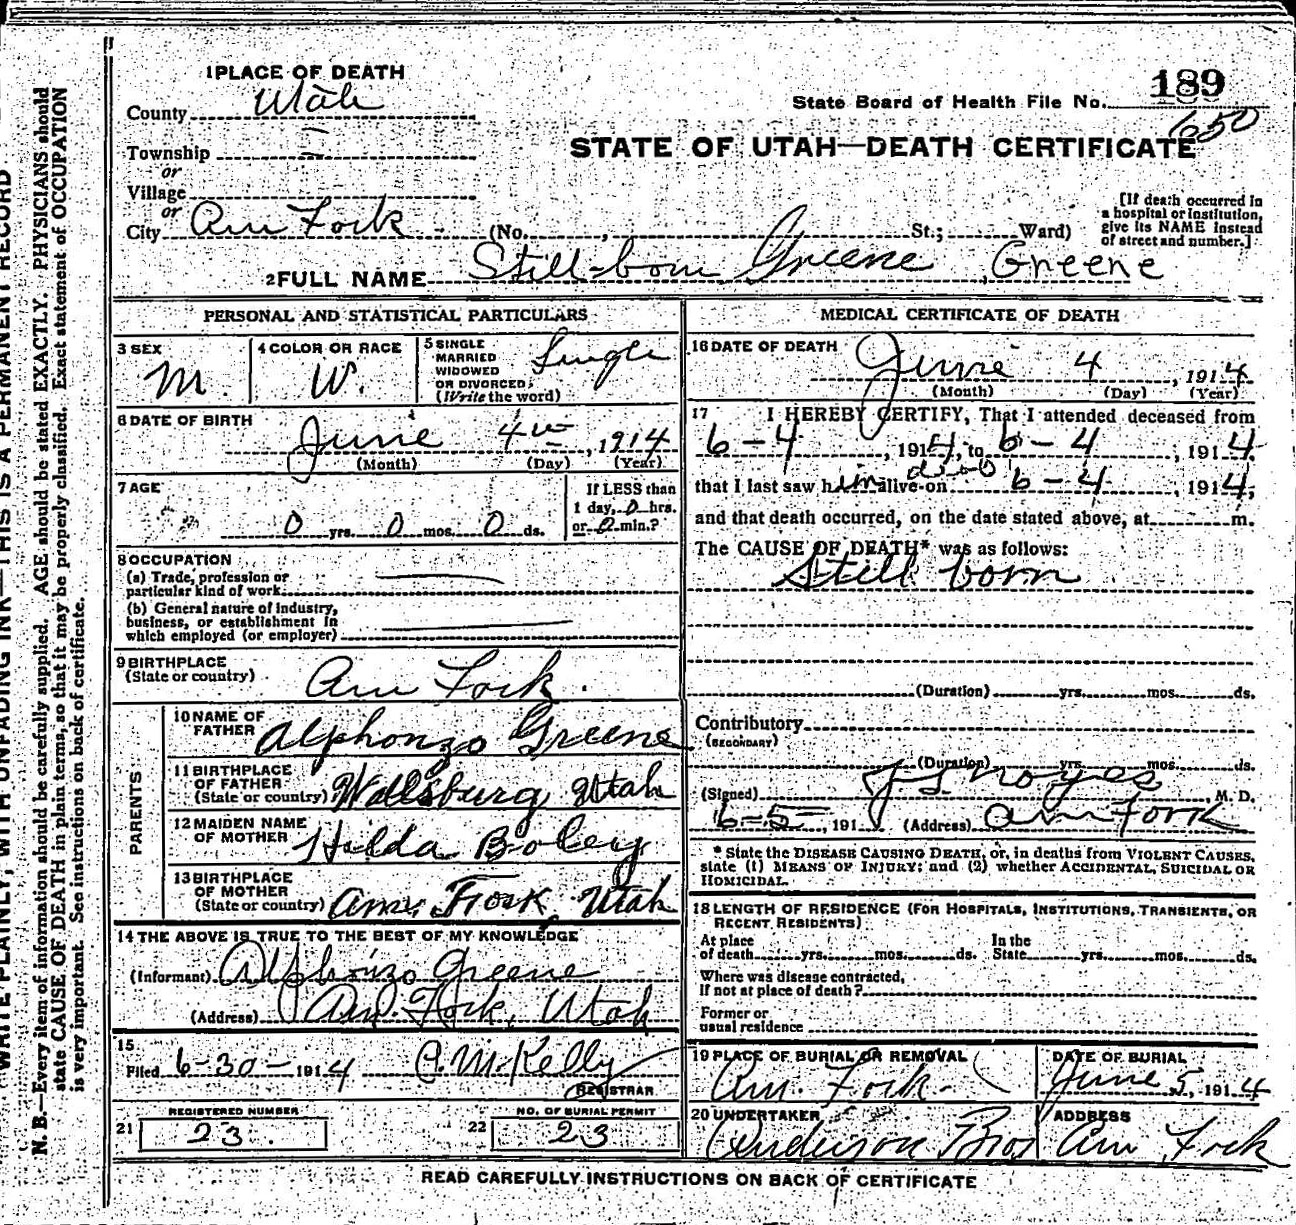 WRITE PLAINLY, WITH UNFADING INK—THIS IS A PERMANENT RECORD
N. B.—Every item of information should be carefully supplied. AGE should be stated EXACTLY. PHYSICIANS should
state CAUSE OF DEATH in plain terms, so that it may be properly classified. Exact statement of OCCUPATION
is very important. See instructions on back of certificate.
1 PLACE OF DEATH
County Utah
Township
or
Village
or
City Am Fork (No. , St.; Ward)
State Board of Health File No. 189
650
STATE OF UTAH—DEATH CERTIFICATE
[If death occurred in
a hospital or institution,
give its NAME instead
of street and number.]
2 FULL NAME Still-born Greene, Greene
PERSONAL AND STATISTICAL PARTICULARS
3 SEX
M.
4 COLOR OR RACE
W.
5 SINGLE
MARRIED
WIDOWED
OR DIVORCED
(Write the word)
Single
6 DATE OF BIRTH
June 4, 1914
(Month) (Day) (Year)
7 AGE
0 yrs. 0 mos. 0 ds.
If LESS than
1 day, 0 hrs.
or 0 min.?
8 OCCUPATION
(a) Trade, profession or
particular kind of work
(b) General nature of industry,
business, or establishment in
which employed (or employer)
9 BIRTHPLACE
(State or country)
Am Fork.
PARENTS
10 NAME OF
FATHER Alphonzo Greene
11 BIRTHPLACE
OF FATHER
(State or country) Wallsburg Utah
12 MAIDEN NAME
OF MOTHER Hilda Boley
13 BIRTHPLACE
OF MOTHER
(State or country) Am. Fork Utah
14 THE ABOVE IS TRUE TO THE BEST OF MY KNOWLEDGE
(Informant) Alphonzo Greene
(Address) Am. Fork, Utah
15
Filed 6-30- 1914
REGISTRAR
REGISTERED NUMBER
21 23.
NO. OF BURIAL PERMIT
22 23
MEDICAL CERTIFICATE OF DEATH
16 DATE OF DEATH
June 4, 1914
(Month) (Day) (Year)
17 I HEREBY CERTIFY, That I attended deceased from
6-4, 1914, to 6-4, 1914.
that I last saw him alive on dead 6-4, 1914,
and that death occurred, on the date stated above, at m.
The CAUSE OF DEATH* was as follows:
Still born
(Duration) yrs. mos. ds.
Contributory
(SECONDARY)
(Duration) yrs. mos. ds.
(Signed) J S Noyes M. D.
6-5-, 191 (Address) Am Fork
* State the DISEASE CAUSING DEATH, or, in deaths from VIOLENT CAUSES,
state (1) MEANS OF INJURY; and (2) whether ACCIDENTAL, SUICIDAL OR
HOMICIDAL.
18 LENGTH OF RESIDENCE (FOR HOSPITALS, INSTITUTIONS, TRANSIENTS, OR
RECENT RESIDENTS)
At place
of death yrs. mos. ds.
In the
State yrs. mos. ds.
Where was disease contracted,
If not at place of death?
Former or
usual residence
19 PLACE OF BURIAL OR REMOVAL
Am. Fork.
DATE OF BURIAL
June 5, 1914
20 UNDERTAKER
Anderson Bros
ADDRESS
Am Fork
READ CAREFULLY INSTRUCTIONS ON BACK OF CERTIFICATE